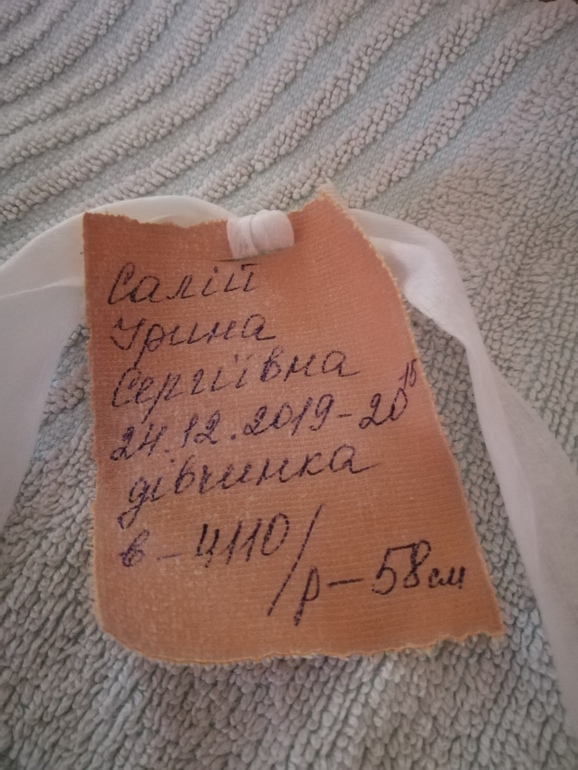 Салій
Ірина
Сергіївна
24.12.2019-20¹⁵
дівчинка
в-4110/
р-58см